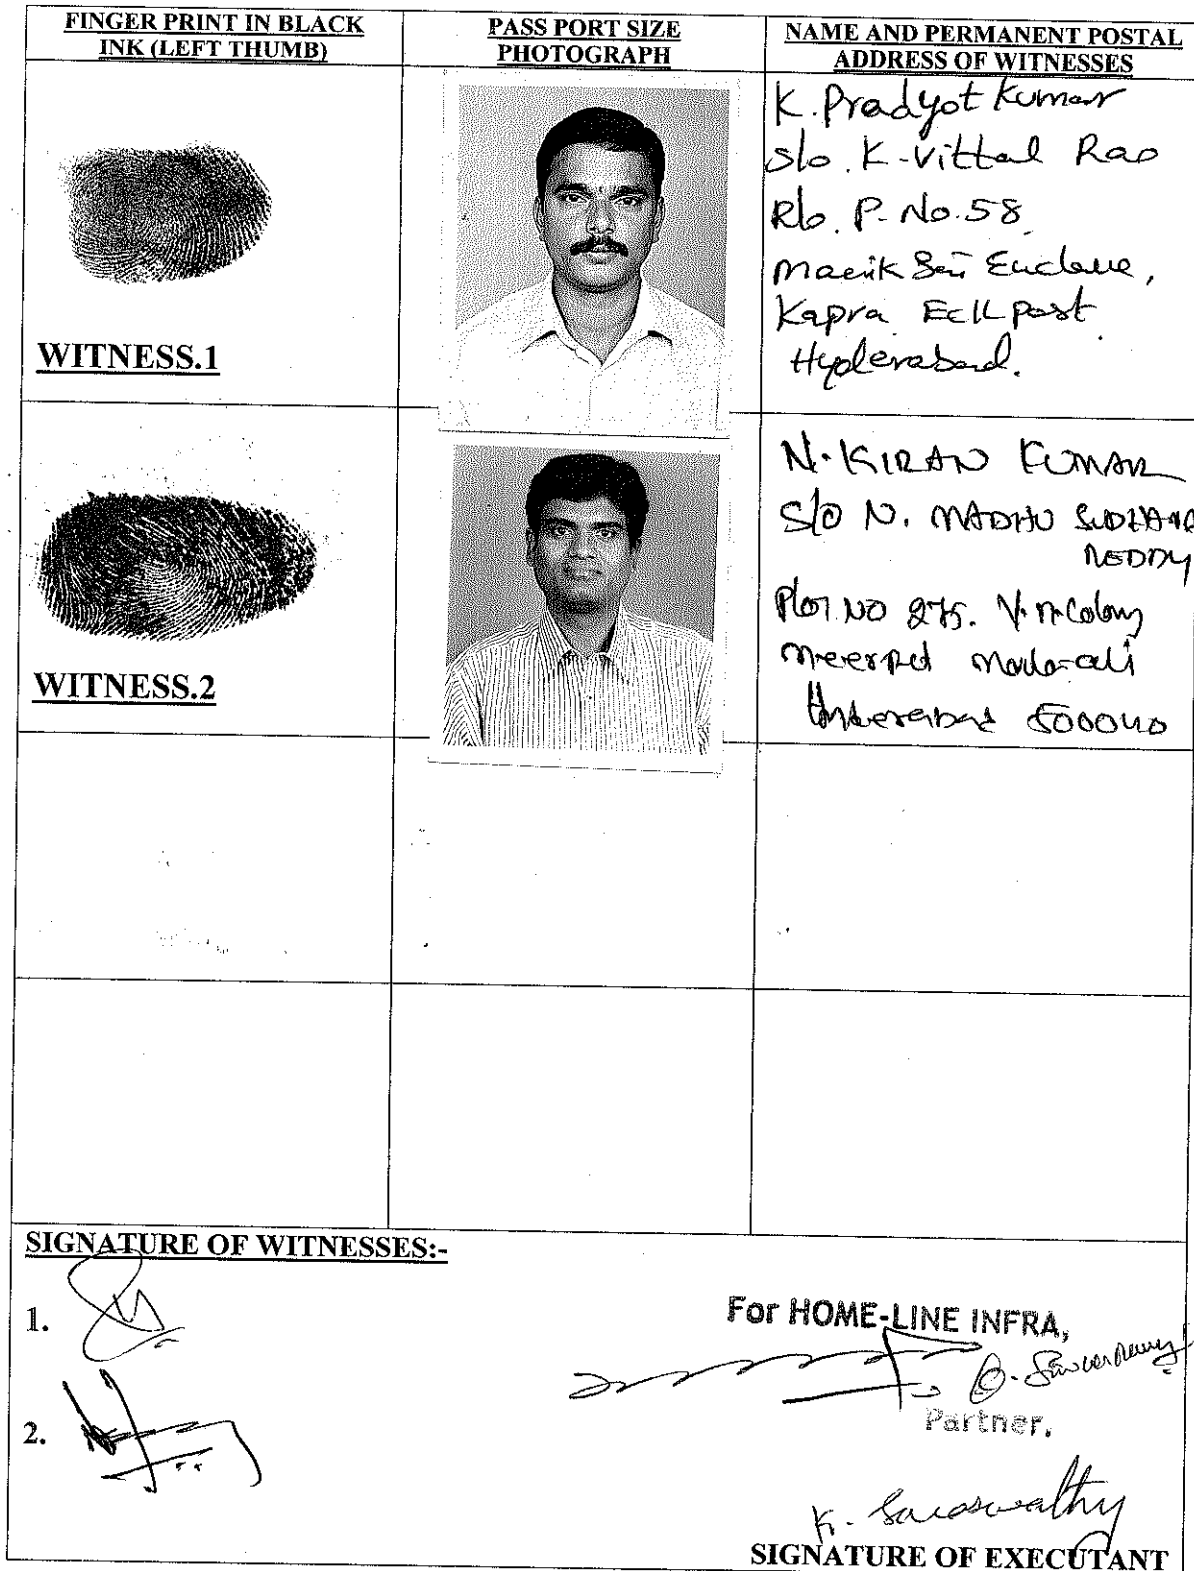 FINGER PRINT IN BLACK
INK (LEFT THUMB)
PASS PORT SIZE
PHOTOGRAPH
NAME AND PERMANENT POSTAL
ADDRESS OF WITNESSES
WITNESS.1
K. Pradyot Kumar
S/o. K. Vittal Rao
R/o. P. No. 58,
Manik Sai Enclave,
Kapra Ecil Post
Hyderabad.
WITNESS.2
N. KIRAN KUMAR
S/O N. MADHU SUDHANA
REDDY
Plot NO 275. Colony
Meerpet Moula-ali
Hyderabad 500040
SIGNATURE OF WITNESSES:-
1.
2.
For HOME-LINE INFRA,
Partner.
K. Saraswathy
SIGNATURE OF EXECUTANT